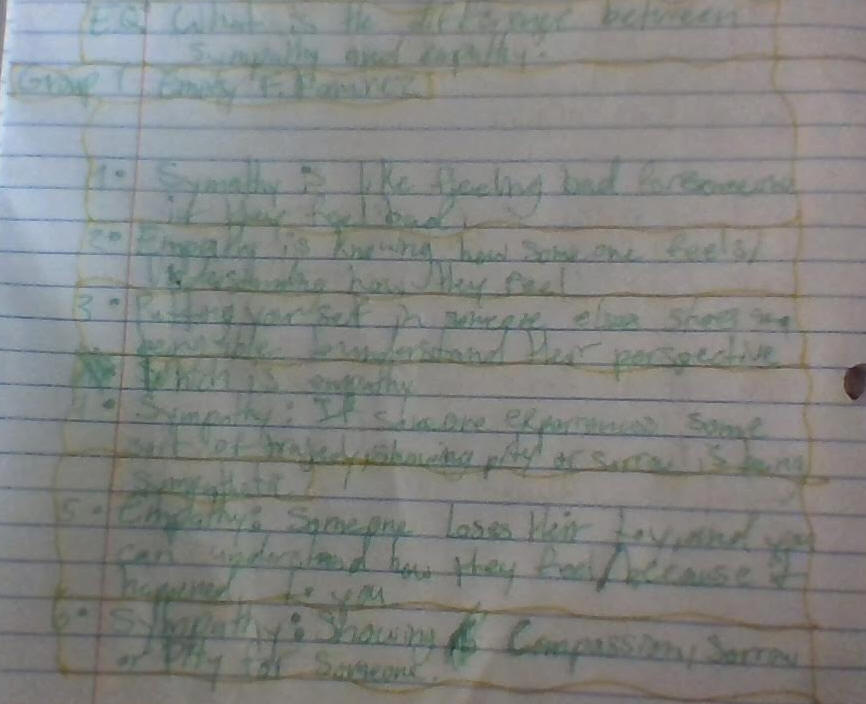 EQ: What is the difference between
sympathy and empathy.
Group 1 Emily F. Ramirez
1. Symathy is like feeling bad for someone
if they feel bad.
2. Empathy is knowing how some one feels/
understanding how they feel
3. Putting your self in someone elses shoes
to understand their perspective
Which is empathy
4. Sympathy: If someone experiences some
sort of tragedy, showing pity or sorrow is being
Sympathetic
5. Empathy: Someone loses their toy, and you
can understand how they feel/because it
happened to you.
6. Sympathy: Showing Compassion, Sorrow
or Pity for Someone.